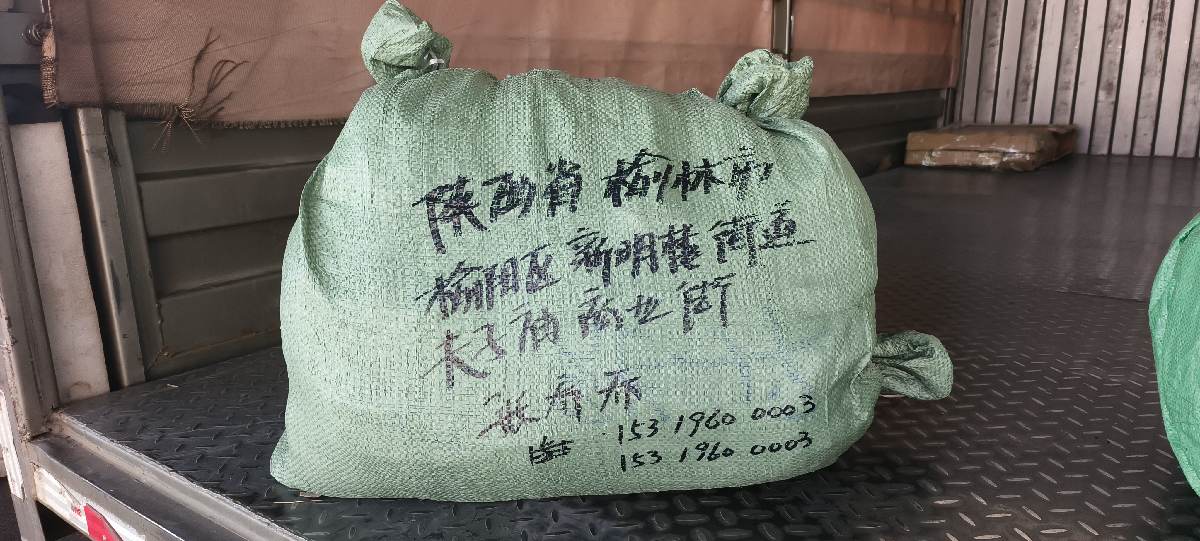 陕西省 榆林市
榆阳区 新明楼 街道
商业街
153 1960 0003
153 1960 0003